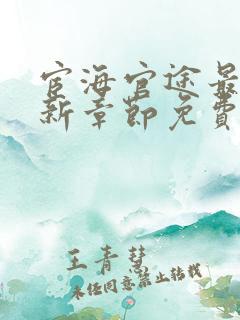 宦海官途最
新章節免費
王青慧
未经同意禁止转载